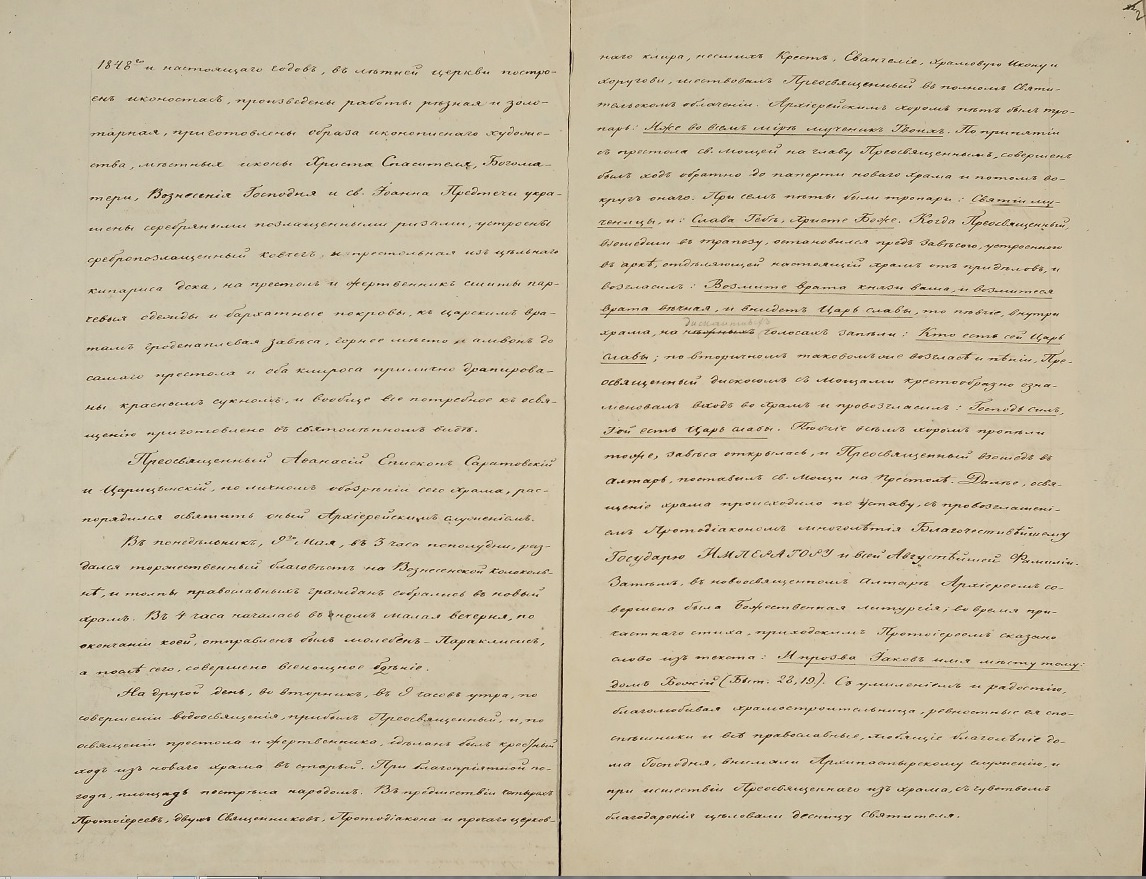 1848го и настоящаго годовъ, въ лѣтней церкви постро-
енъ иконостасъ, произведены работы рѣзная и золо-
тарная, приготовлены образа иконописнаго художе-
ства, мѣстныя иконы Христа Спасителя, Богома-
тери, Вознесенія Господня и св. Іоанна Предтечи укра-
шены серебряными позлащенными ризами, устроены
сребропозлащенный ковчегъ, и престольная изъ цѣльнаго
кипариса дска, на престолъ и жертвенникъ сшиты пар-
чевыя одежды и бархатные покровы, къ царскимъ вра-
тамъ гроденаплевая завѣса, горнее мѣсто и амвонъ до
самаго престола и оба клироса прилично драпирова-
ны краснымъ сукномъ, и вообще все потребное къ освя-
щенію приготовлено въ святолѣпномъ видѣ.
Преосвященный Аѳанасій Епископъ Саратовскій
и Царицынскій, по личномъ обозрѣніи сего храма, рас-
порядился освятить оный Архіерейскимъ служеніемъ.
Въ понедѣльникъ, 9го Мая, въ 3 часа пополудни, раз-
дался торжественный благовѣстъ на Вознесенской колоколь-
нѣ, и толпы православныхъ гражданъ собрались въ новый
храмъ. Въ 4 часа началась въ немъ малая вечерня, по
окончаніи коей, отправленъ былъ молебенъ - Параклисисъ,
а послѣ сего, совершено всенощное бдѣніе.
На другой день, во вторникъ, въ 9 часовъ утра, по
совершеніи водоосвященія, прибылъ Преосвященный, и, по
освященіи престола и жертвенника, сдѣланъ былъ крестный
ходъ изъ новаго храма въ старый. При благопріятной по-
годѣ, площадь пестрѣла народомъ. Въ предшествіи четырехъ
Протоіереевъ, двухъ Священниковъ, Протодіакона и прочаго церков-
наго клира, несшихъ Крестъ, Евангеліе, храмовую Икону и
хоругови, шествовалъ Преосвященный въ полномъ Святи-
тельскомъ облаченіи. Архіерейскимъ хоромъ пѣтъ былъ тро-
парь: Иже во всемъ мірѣ мученикъ Твоихъ. По принятіи
съ престола св. мощей на главу Преосвященнымъ, совершенъ
былъ ходъ обратно до паперти новаго храма и потомъ во-
кругъ онаго. При семъ пѣты были тропари: Святіи му-
ченицы, и: Слава Тебѣ, Христе Боже. Когда Преосвященный,
взошедши въ трапезу, остановился предъ завѣсою, устроенною
въ аркѣ, отдѣляющей настоящій храмъ отъ придѣловъ, и
возгласилъ: Возмите врата князи ваша, и возмитеся
врата вѣчная, и внидетъ Царь славы, то пѣвчіе, внутри
дискантовыхъ
храма, на нѣжныхъ голосахъ запѣли: Кто есть сей Царь
славы; по вторичномъ таковомъ же возгласѣ и пѣніи, Пре-
освященный дискосомъ съ мощами крестообразно озна-
меновалъ входъ во храмъ и провозгласилъ: Господь силъ,
Той есть Царь славы. Пѣвчіе всѣмъ хоромъ пропѣли
тоже, завѣса открылась, и Преосвященный взошедъ въ
алтарь, поставилъ св. Мощи на Престолѣ. Далѣе, освя-
щеніе храма происходило по уставу, съ провозглашені-
емъ Протодіакономъ многолѣтія Благочестивѣйшему
Государю ИМПЕРАТОРУ и всей Августѣйшей Фамиліи.
Затѣмъ, въ новоосвященномъ алтарѣ Архіереемъ со-
вершена была Божественная литургія; во время при-
частнаго стиха, приходскимъ Протоіереемъ сказано
слово изъ текста: И прозва Іаковъ имя мѣсту тому:
домъ Божій (Быт. 28, 19). Съ умиленіемъ и радостію,
благолюбивая храмостроительница, ревностные ея спо-
спѣшники и всѣ православные, любящіе благолѣпіе до-
ма Господня, внимали Архипастырскому служенію, и
при шествіи Преосвященнаго изъ храма, съ чувствомъ
благодаренія цѣловали десницу Святителя.